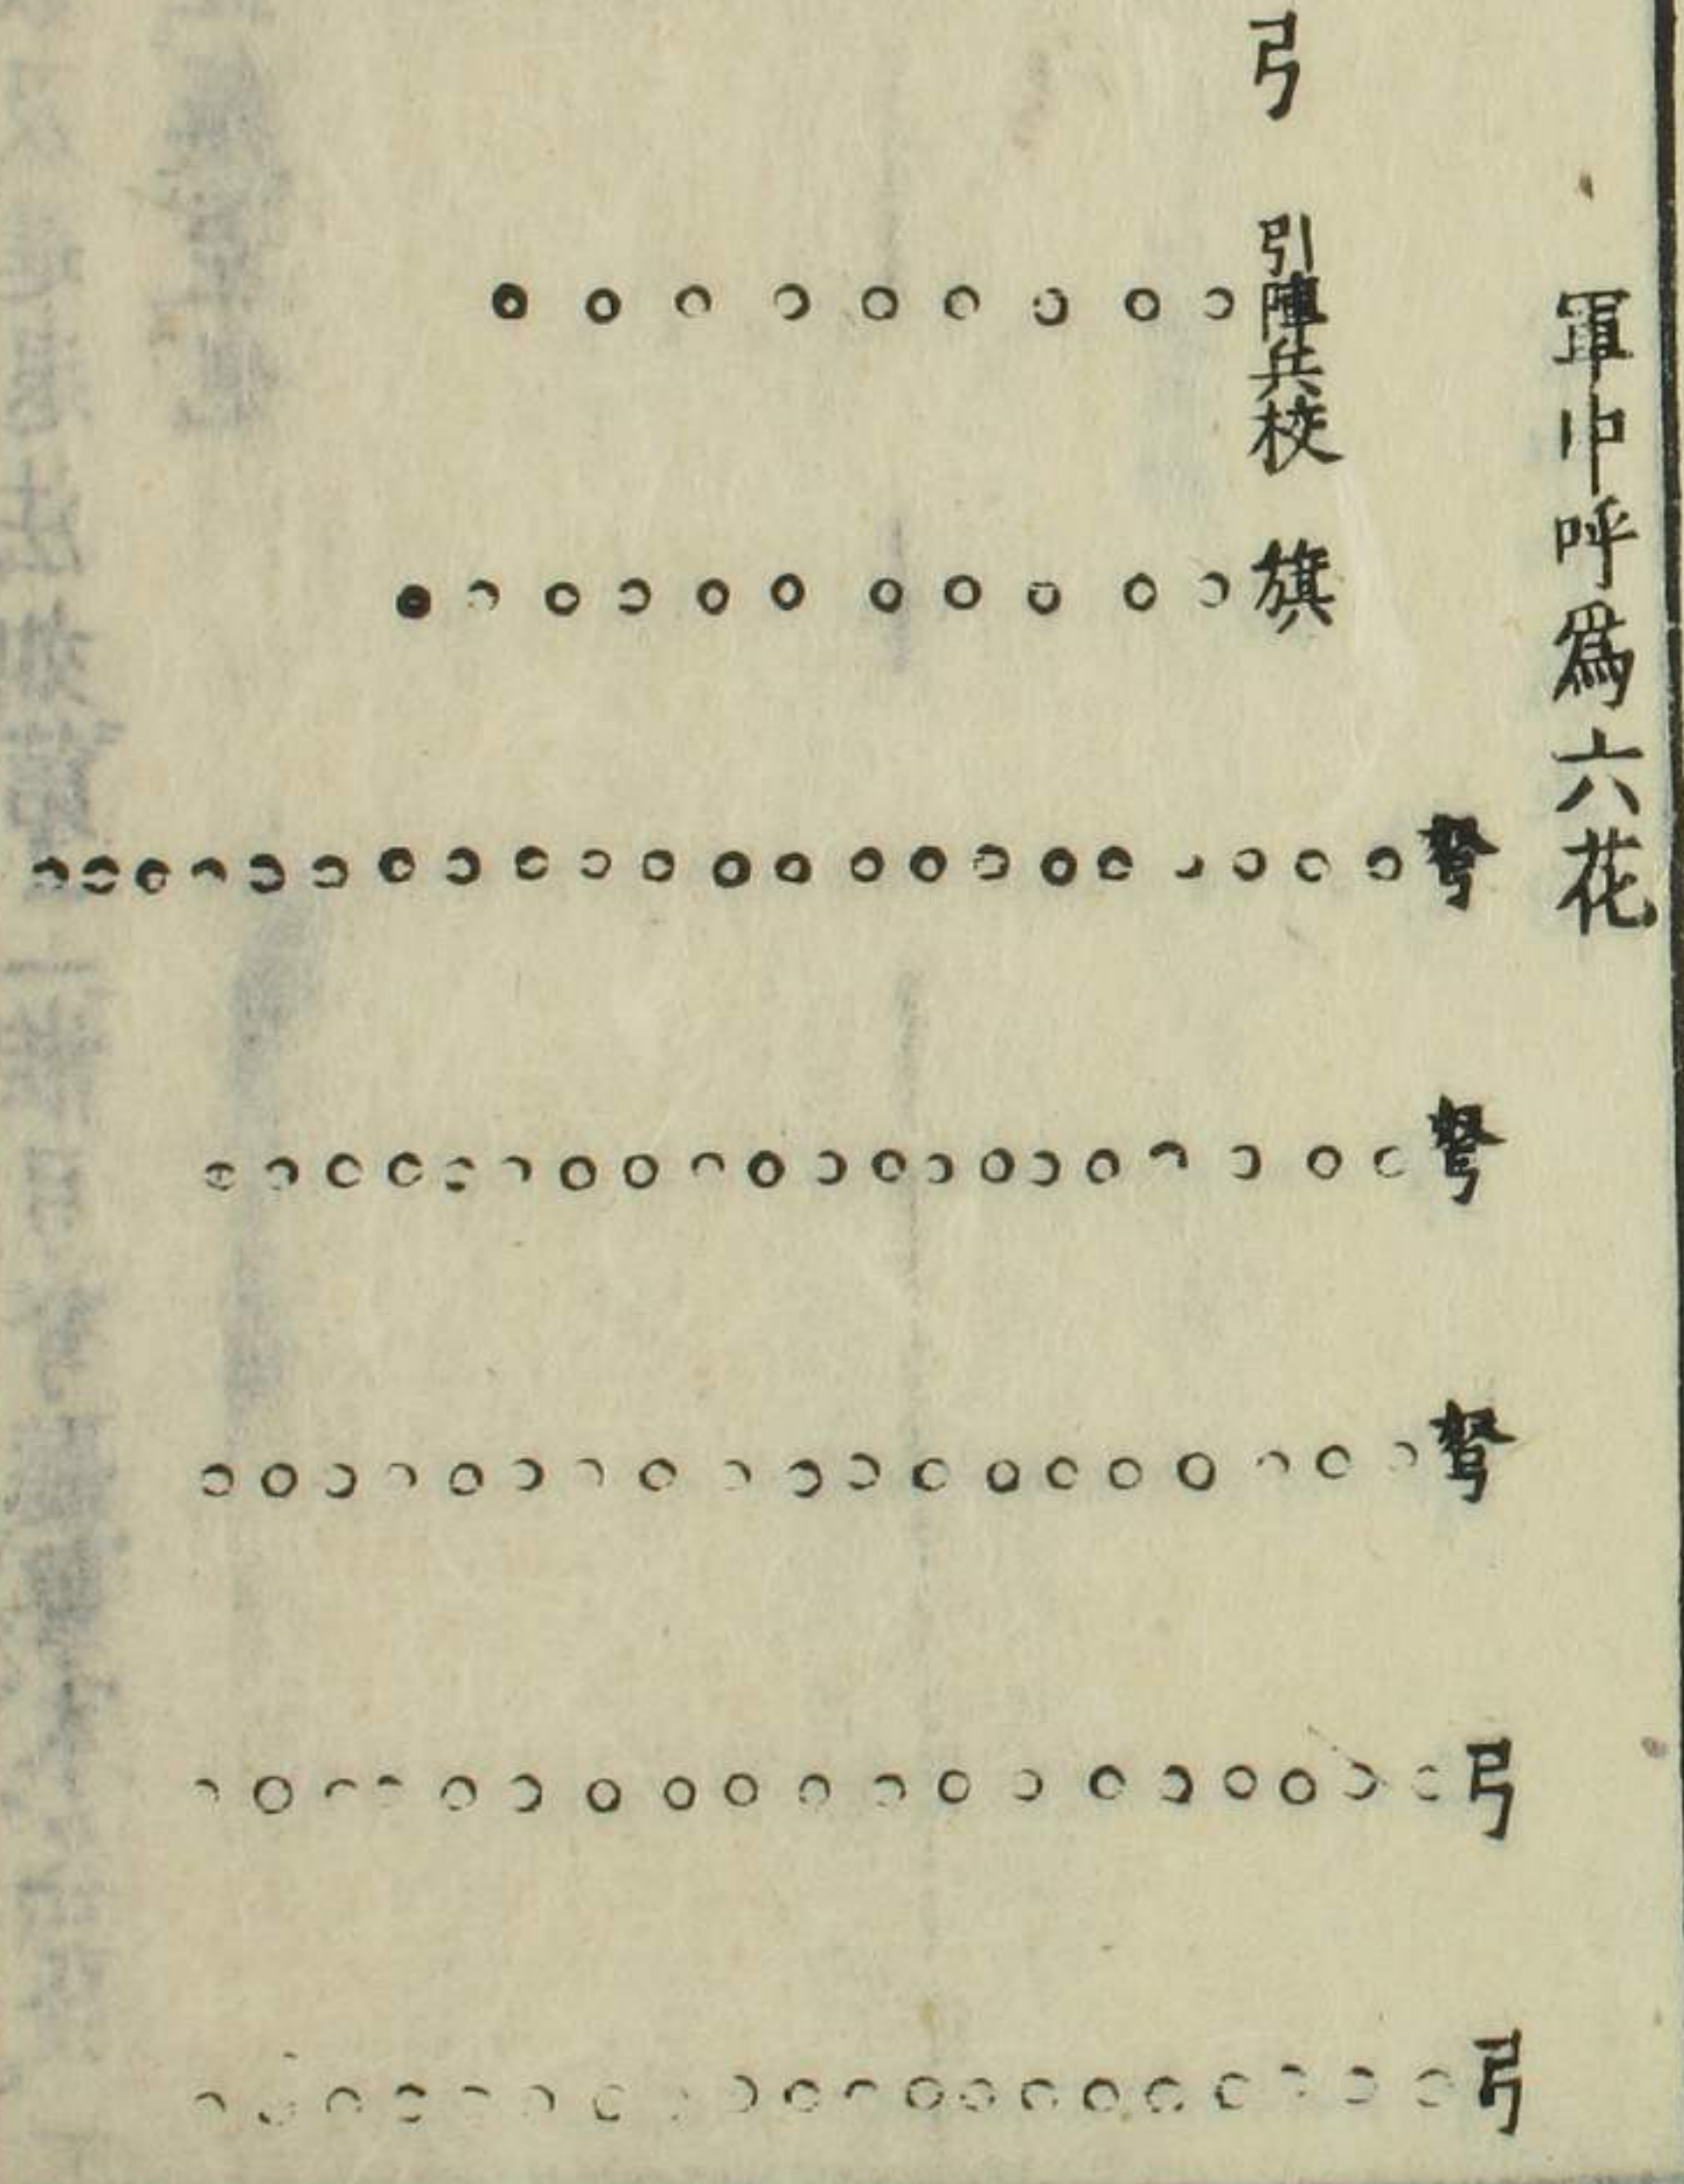 軍中呼爲六花
弓
引陣兵校
旗
弩
弩
弩
弓
弓